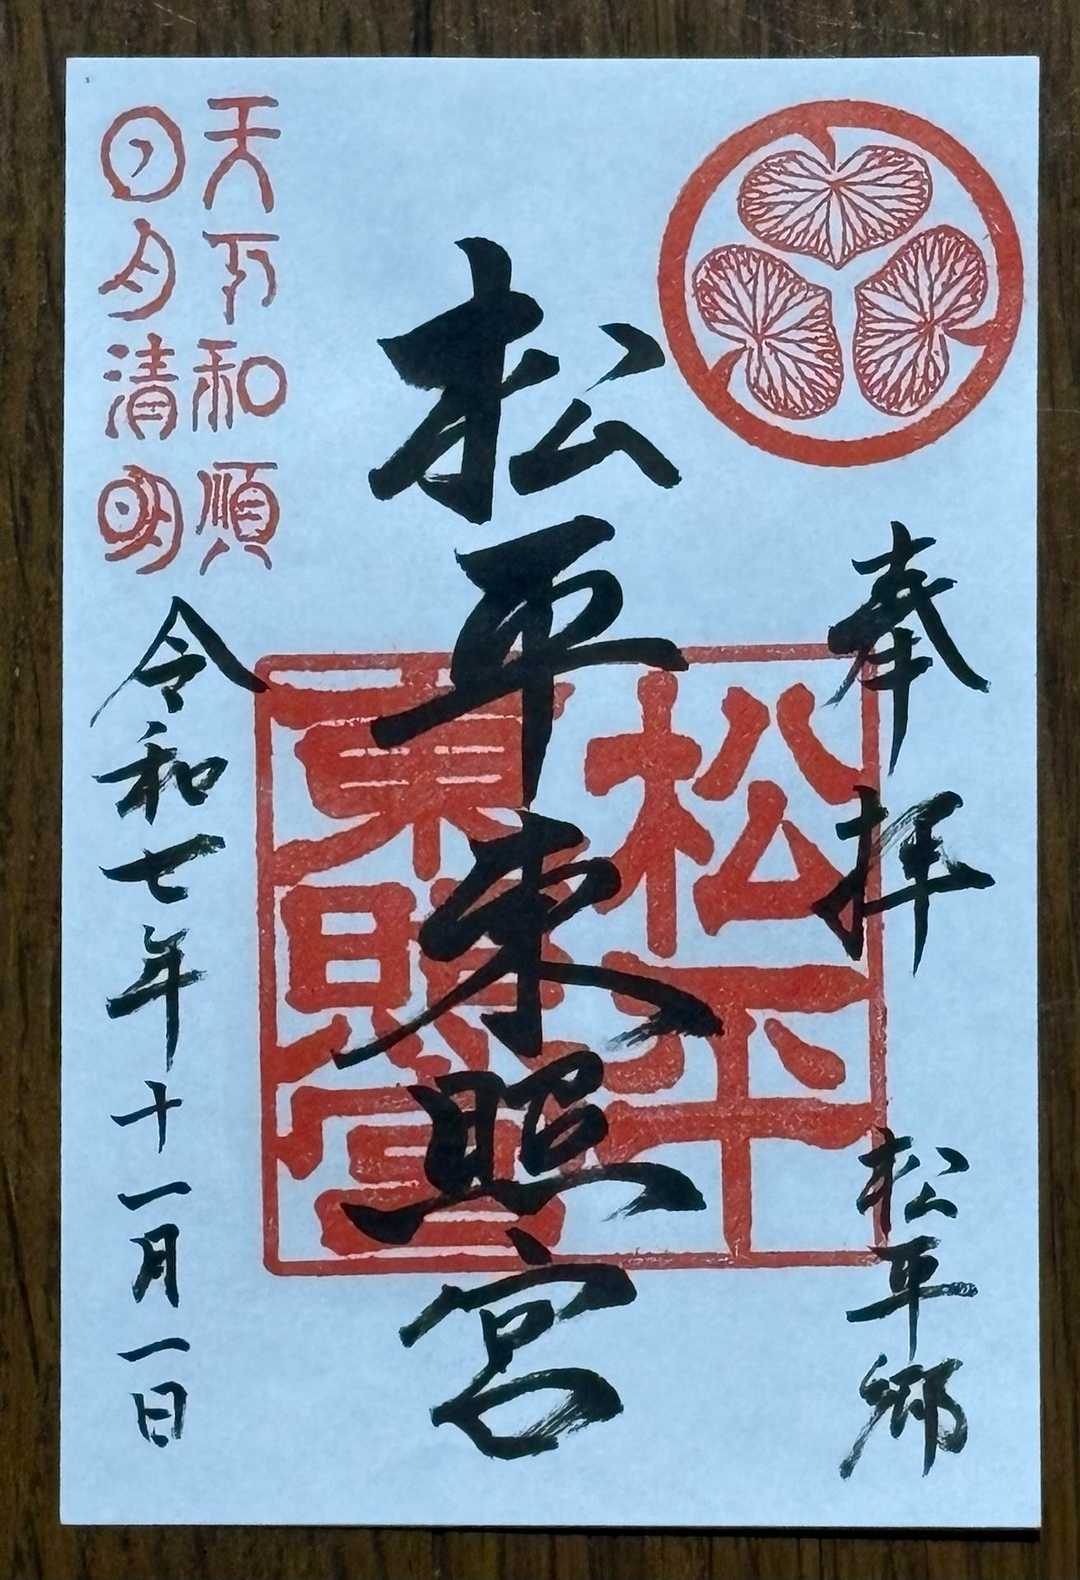 奉拝
松平郷
松平東照宮
松平
東照宮
天下和順
日月清明
令和七年十一月一日